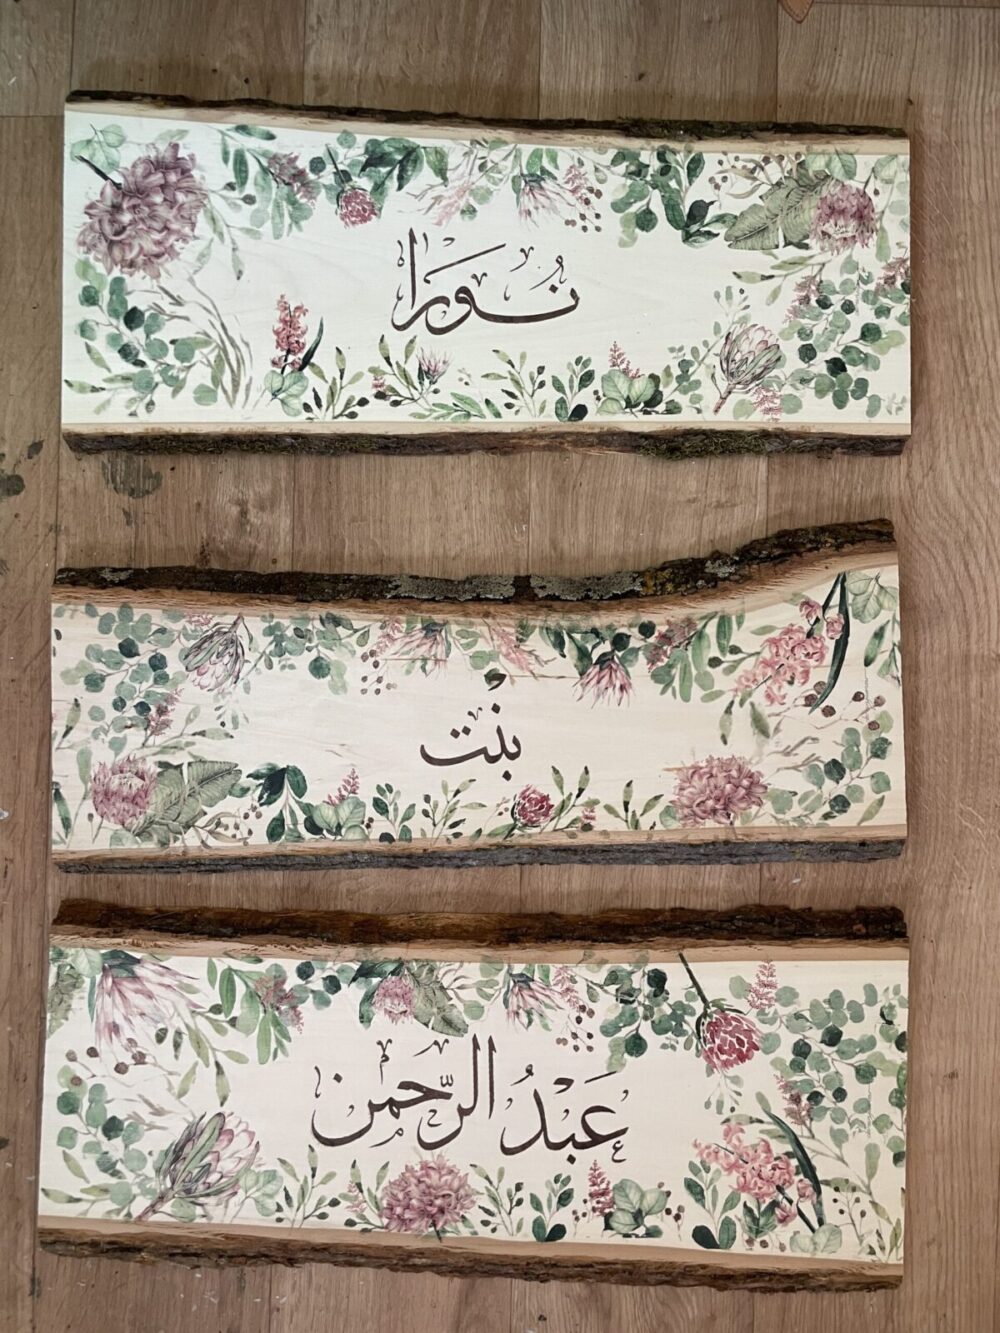 نُورا
بنْت
عَبْدُ الرَّحمن